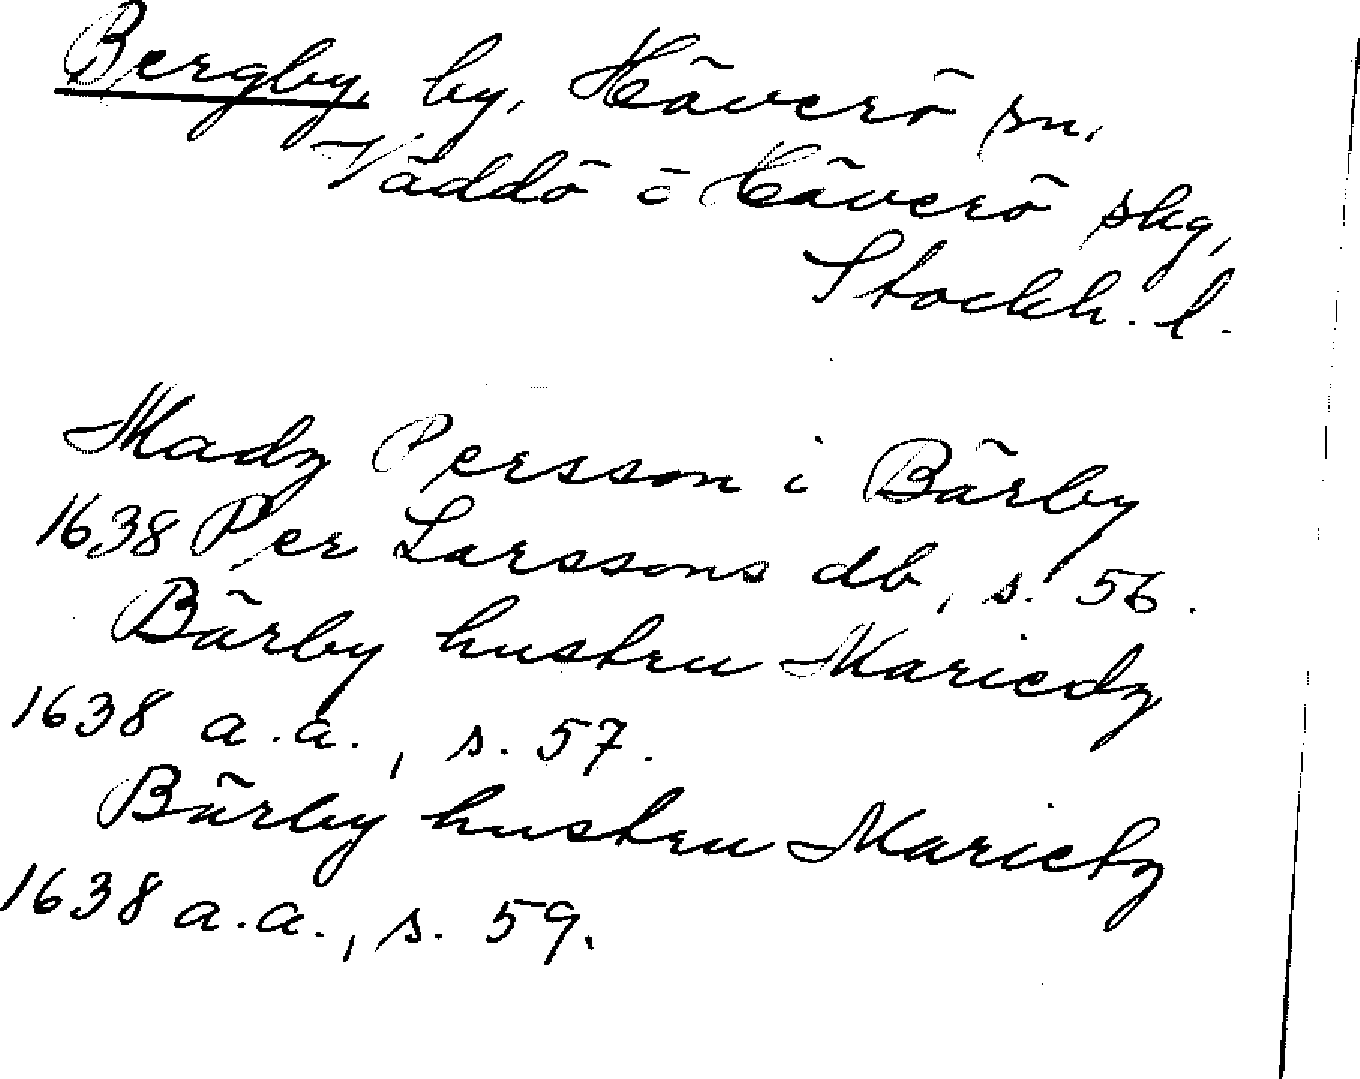 Bergby, by, Häverö sn,
Väddö o Häverö skg,
Stockh. l.
Madz Persson i Bärby
1638 Per Larssons db, s. 56.
Bärby hustru Mariedz
1638 a.a., s. 57.
Bärby hustru Marietz
1638 a.a., s. 59.